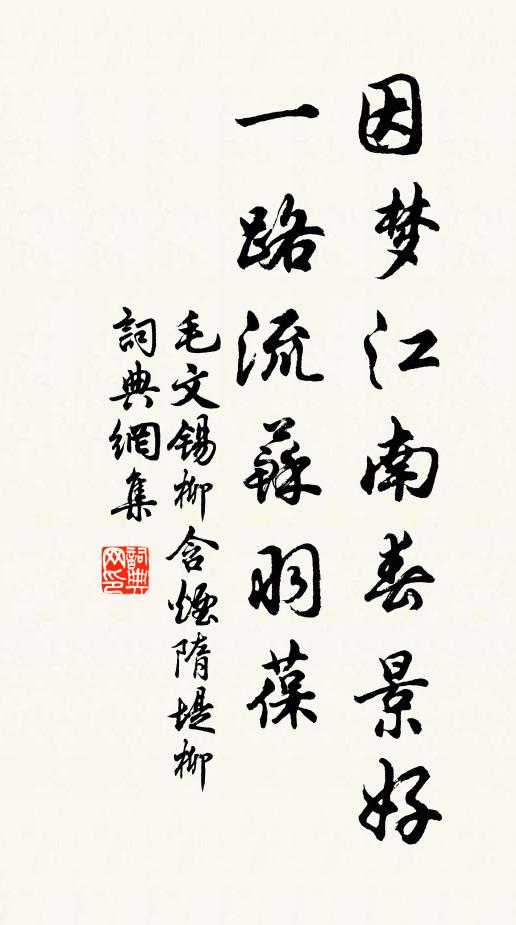 因梦江南春景好
一路流蘇羽葆
毛文锡柳含煙隋堤柳
詞典網集
詞典网印